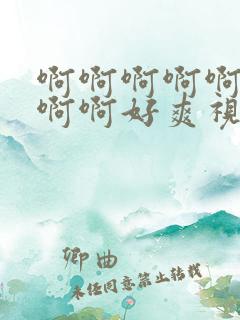 啊啊啊啊啊
啊啊好爽视
卿曲
未经同意禁止转载